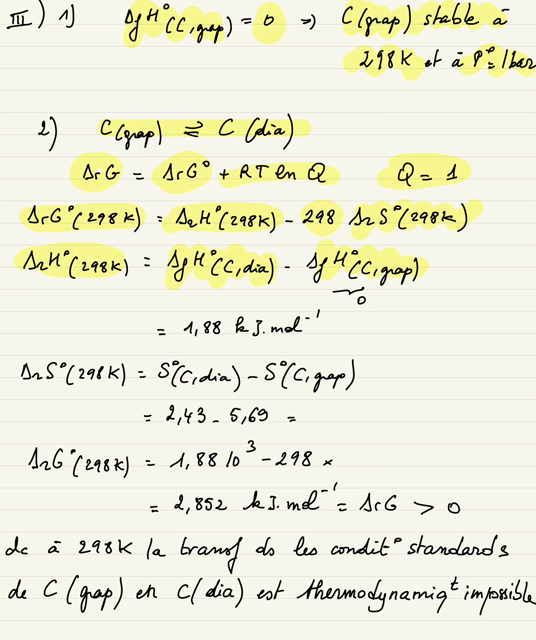 III) 1) ΔfH°(C,grap) = 0 => C(grap) stable à
298K et à P°=1bar
2) C(grap) ⇌ C(dia)
ΔrG = ΔrG° + RT ln Q Q = 1
ΔrG°(298K) = ΔrH°(298K) - 298 ΔrS°(298K)
ΔrH°(298K) = ΔfH°(C,dia) - ΔfH°(C,grap)
0
= 1,88 kJ.mol⁻¹
ΔrS°(298K) = S°(C,dia) - S°(C,grap)
= 2,43 - 5,69 =
ΔrG°(298K) = 1,88 10³ - 298 ×
= 2,852 kJ.mol⁻¹ = ΔrG > 0
dc à 298K la transf ds les condit° standards
de C(grap) en C(dia) est thermodynamiqᵗ impossible